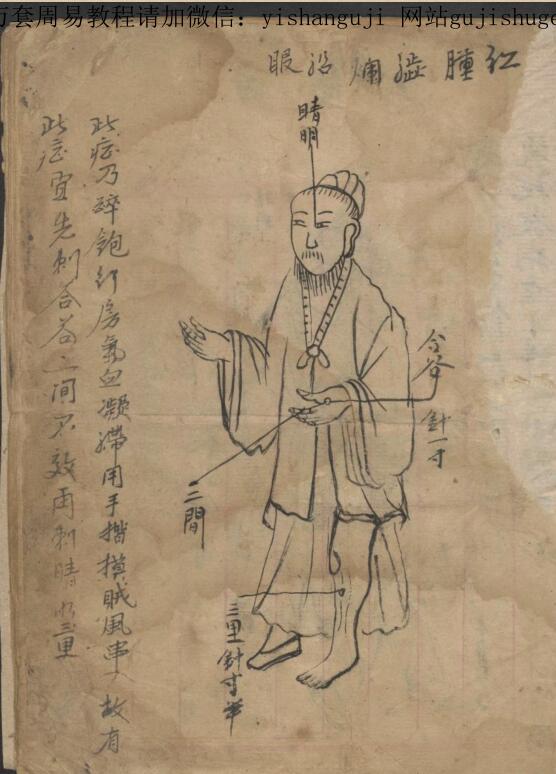 万套周易教程请加微信：yishanguji 网站gujishuge
红腫澁爛沿眼
睛明
合谷 針一寸
二間
三里針寸半
此症乃醉飽行房氣血凝滯用手揩摸賊風串入故有
此症宜先刺合谷二间不效再刺睛明三里